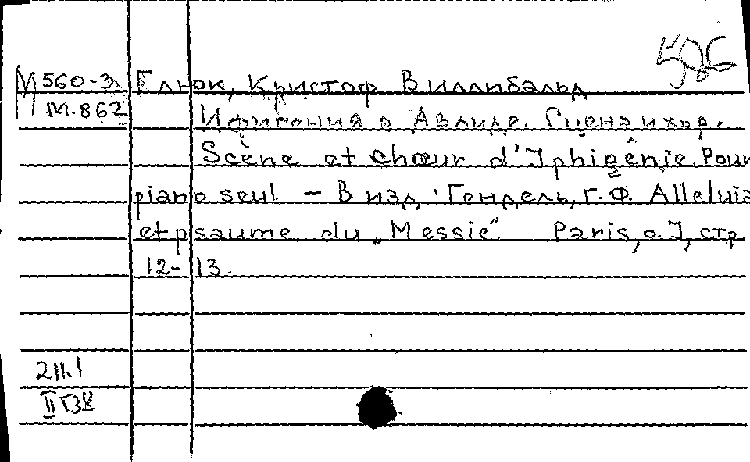 586
М 560-3 Глюк, Кристоф Виллибальд
М.862 Ифигения в Авлиде. Сцена и хор.
Scène et chœur d'Iphigénie Pour
piano seul – В изд.: Гендель, Г.Ф. Alleluia
et psaume du „Messie". Paris, стр
12-13.